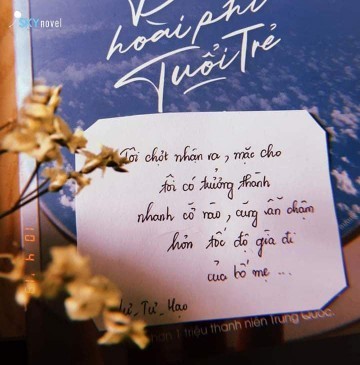 SKYnovel
hoài phí
Tuổi Trẻ
Tôi chợt nhận ra, mặc cho
tôi có trưởng thành
nhanh cỡ nào, cũng vẫn chậm
hơn tốc độ già đi
của bố mẹ ...
Tư_Hạo
1 triệu thanh niên Trung Quốc.